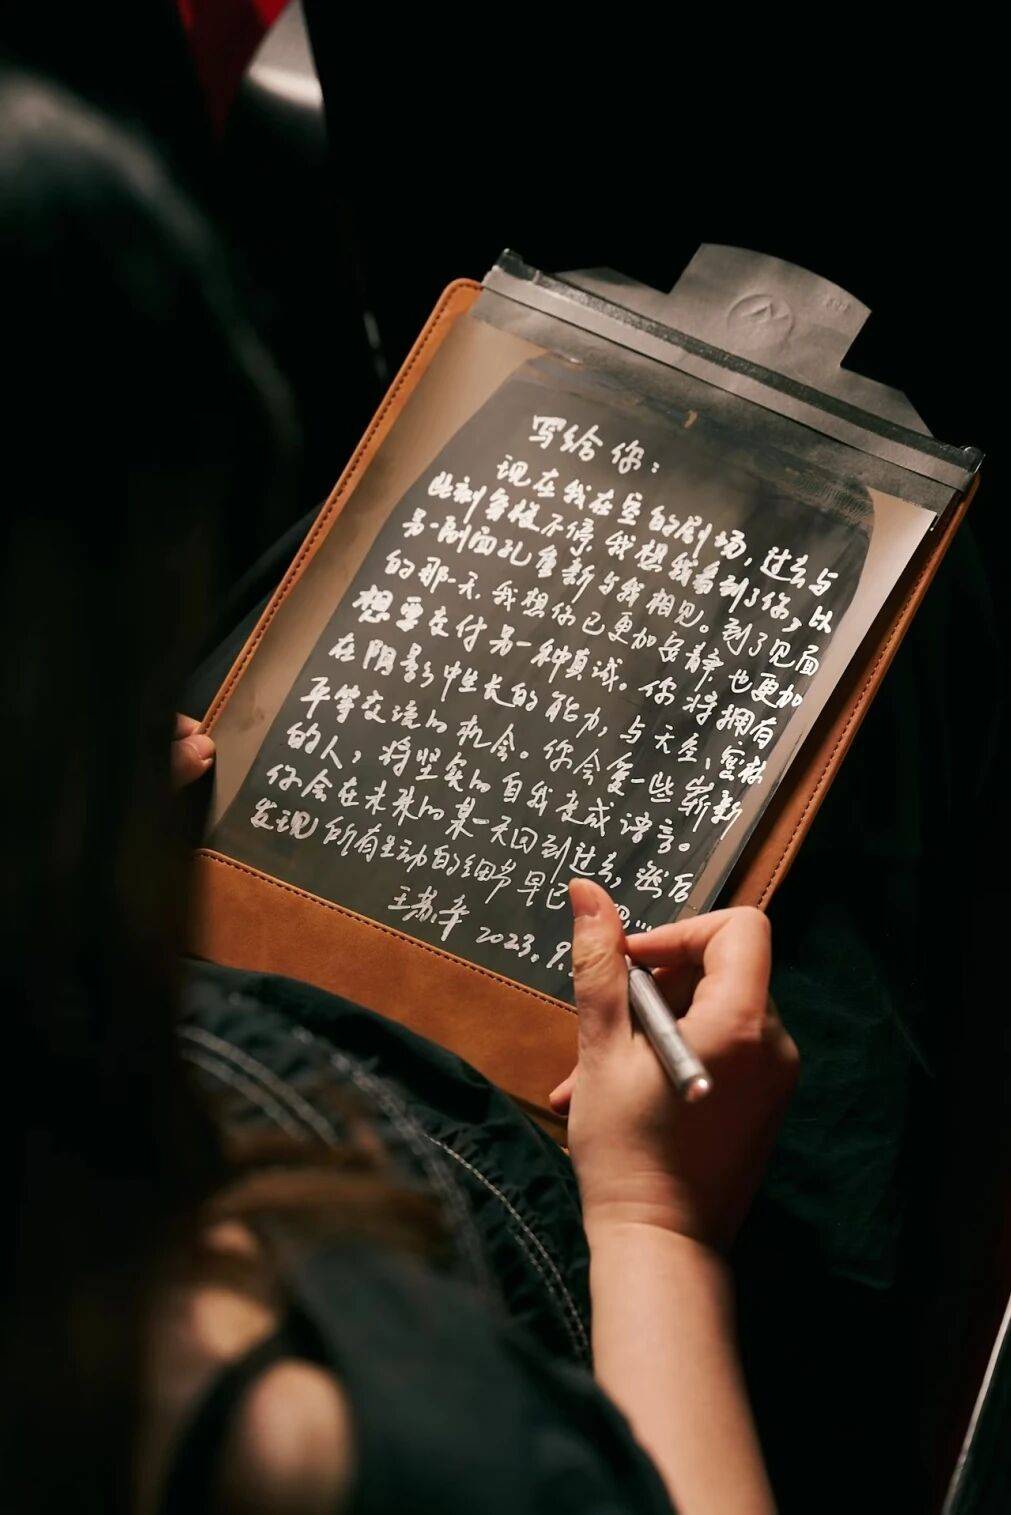 写给你：
现在我在空的剧场，过去与
此刻不停，我想我看到了你，以
另一副面孔重新与我相见。到了见面
的那一天，我想你已更加安静，也更加
想要交付另一种真诚。你将拥有
在阴影中生长的能力，与天空、密林
平等交流的机会。你会爱一些崭新
的人，将坚实的自我变成语言。
你会在未来的某一天回到过去，然后
发现所有生动的细节早已
王苏辛 2023.9.